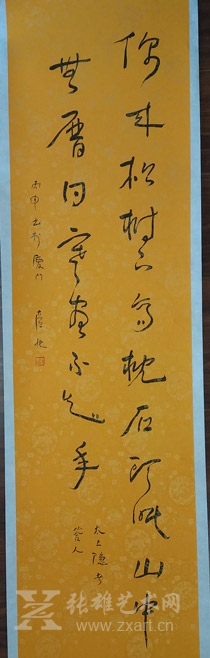 偶来松树下高枕石头眠山中
無曆日寒尽不知年
太上隐者
答人
丙申书於厦门
张雄艺术网
www.zxart.cn